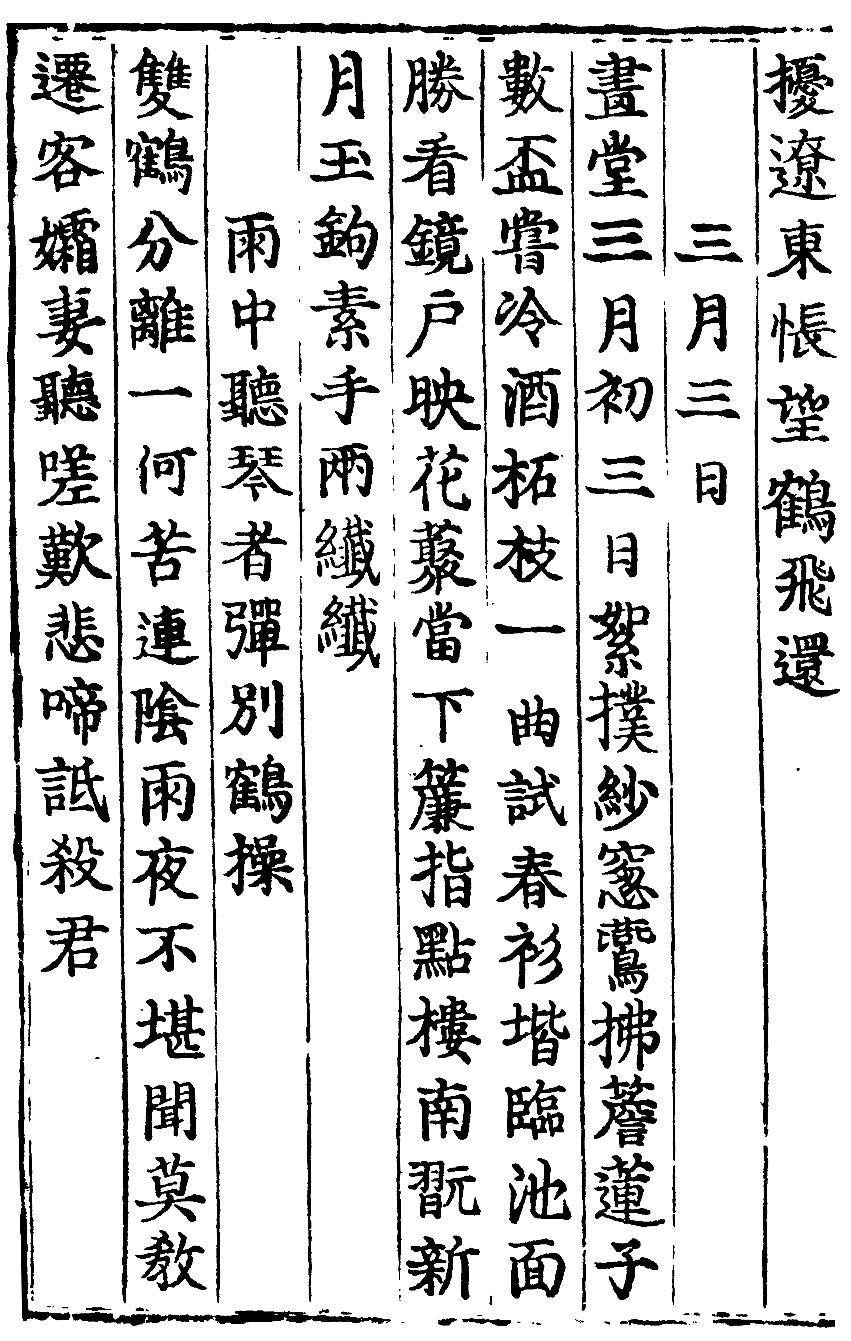 擾遼東悵望鶴飛還
三月三日
畫堂三月初三日絮撲紗窓鷰拂簷蓮子
數盃嘗冷酒柘枝一曲試春衫堦臨池面
勝看鏡戶映花藂當下簾指點樓南翫新
月玉鉤素手兩纖纖
雨中聽琴者彈別鶴操
雙鶴分離一何苦連陰雨夜不堪聞莫教
遷客孀妻聽嗟歎悲啼詆殺君